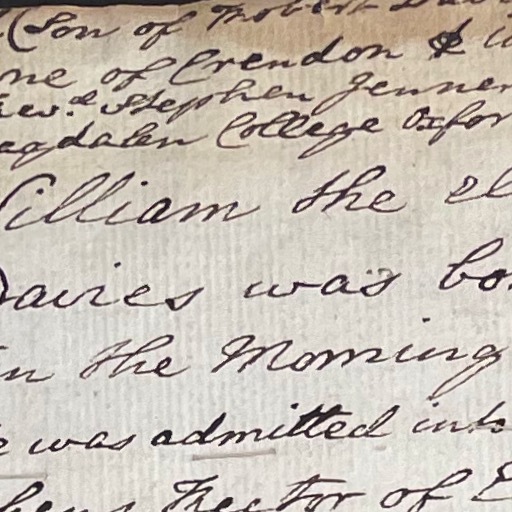 (Son of Robert Davi
ne of Crendon & w
Rev.d Stephen Jenner
agdalen College Oxfor
William the el
Davies was bor
in the Morning
e was admitted into
hens Rector of E